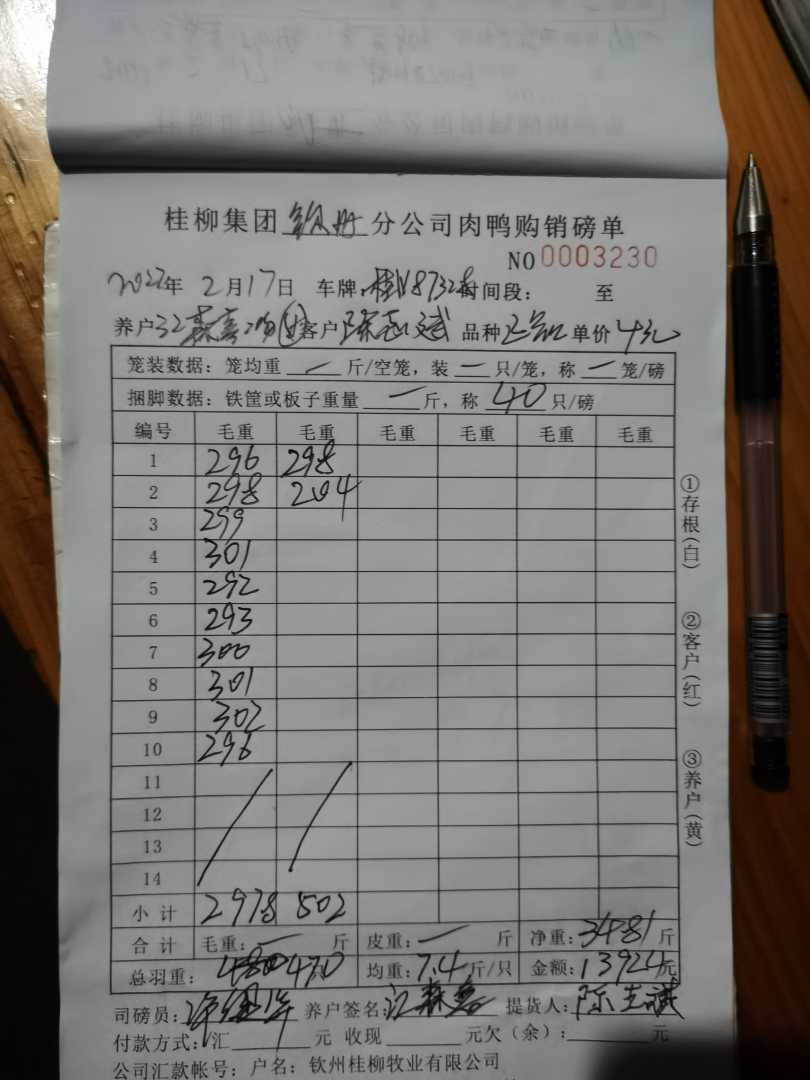 桂柳集团 钦州 分公司肉鸭购销磅单
NO 0003230
2022年 2月17日 车牌: 时间段: 至
养户 客户 陈志斌 品种 正品 单价
笼装数据: 笼均重 — 斤/空笼, 装 — 只/笼, 称 — 笼/磅
捆脚数据: 铁筐或板子重量 — 斤, 称 40 只/磅
编号 毛重 毛重 毛重 毛重 毛重 毛重
1 296 298
2 298 204
3 299
4 301
5 292
6 293
7 300
8 301
9 302
10 296
11
12
13
14
小计 2978 502
合计 毛重: — 斤 皮重: — 斤 净重: 3481 斤
总羽重: 470 均重: 7.4 斤/只 金额: 13924 元
司磅员: 养户签名: 提货人: 陈志斌
付款方式: 汇 元 收现 元欠(余): 元
公司汇款帐号: 户名: 钦州桂柳牧业有限公司
①存根(白)
②客户(红)
③养户(黄)